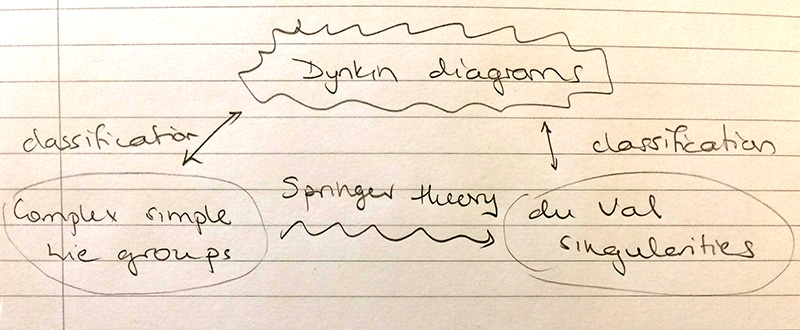 Dynkin diagrams
classification
classification
Springer theory
Complex simple
Lie groups
du Val
singularities